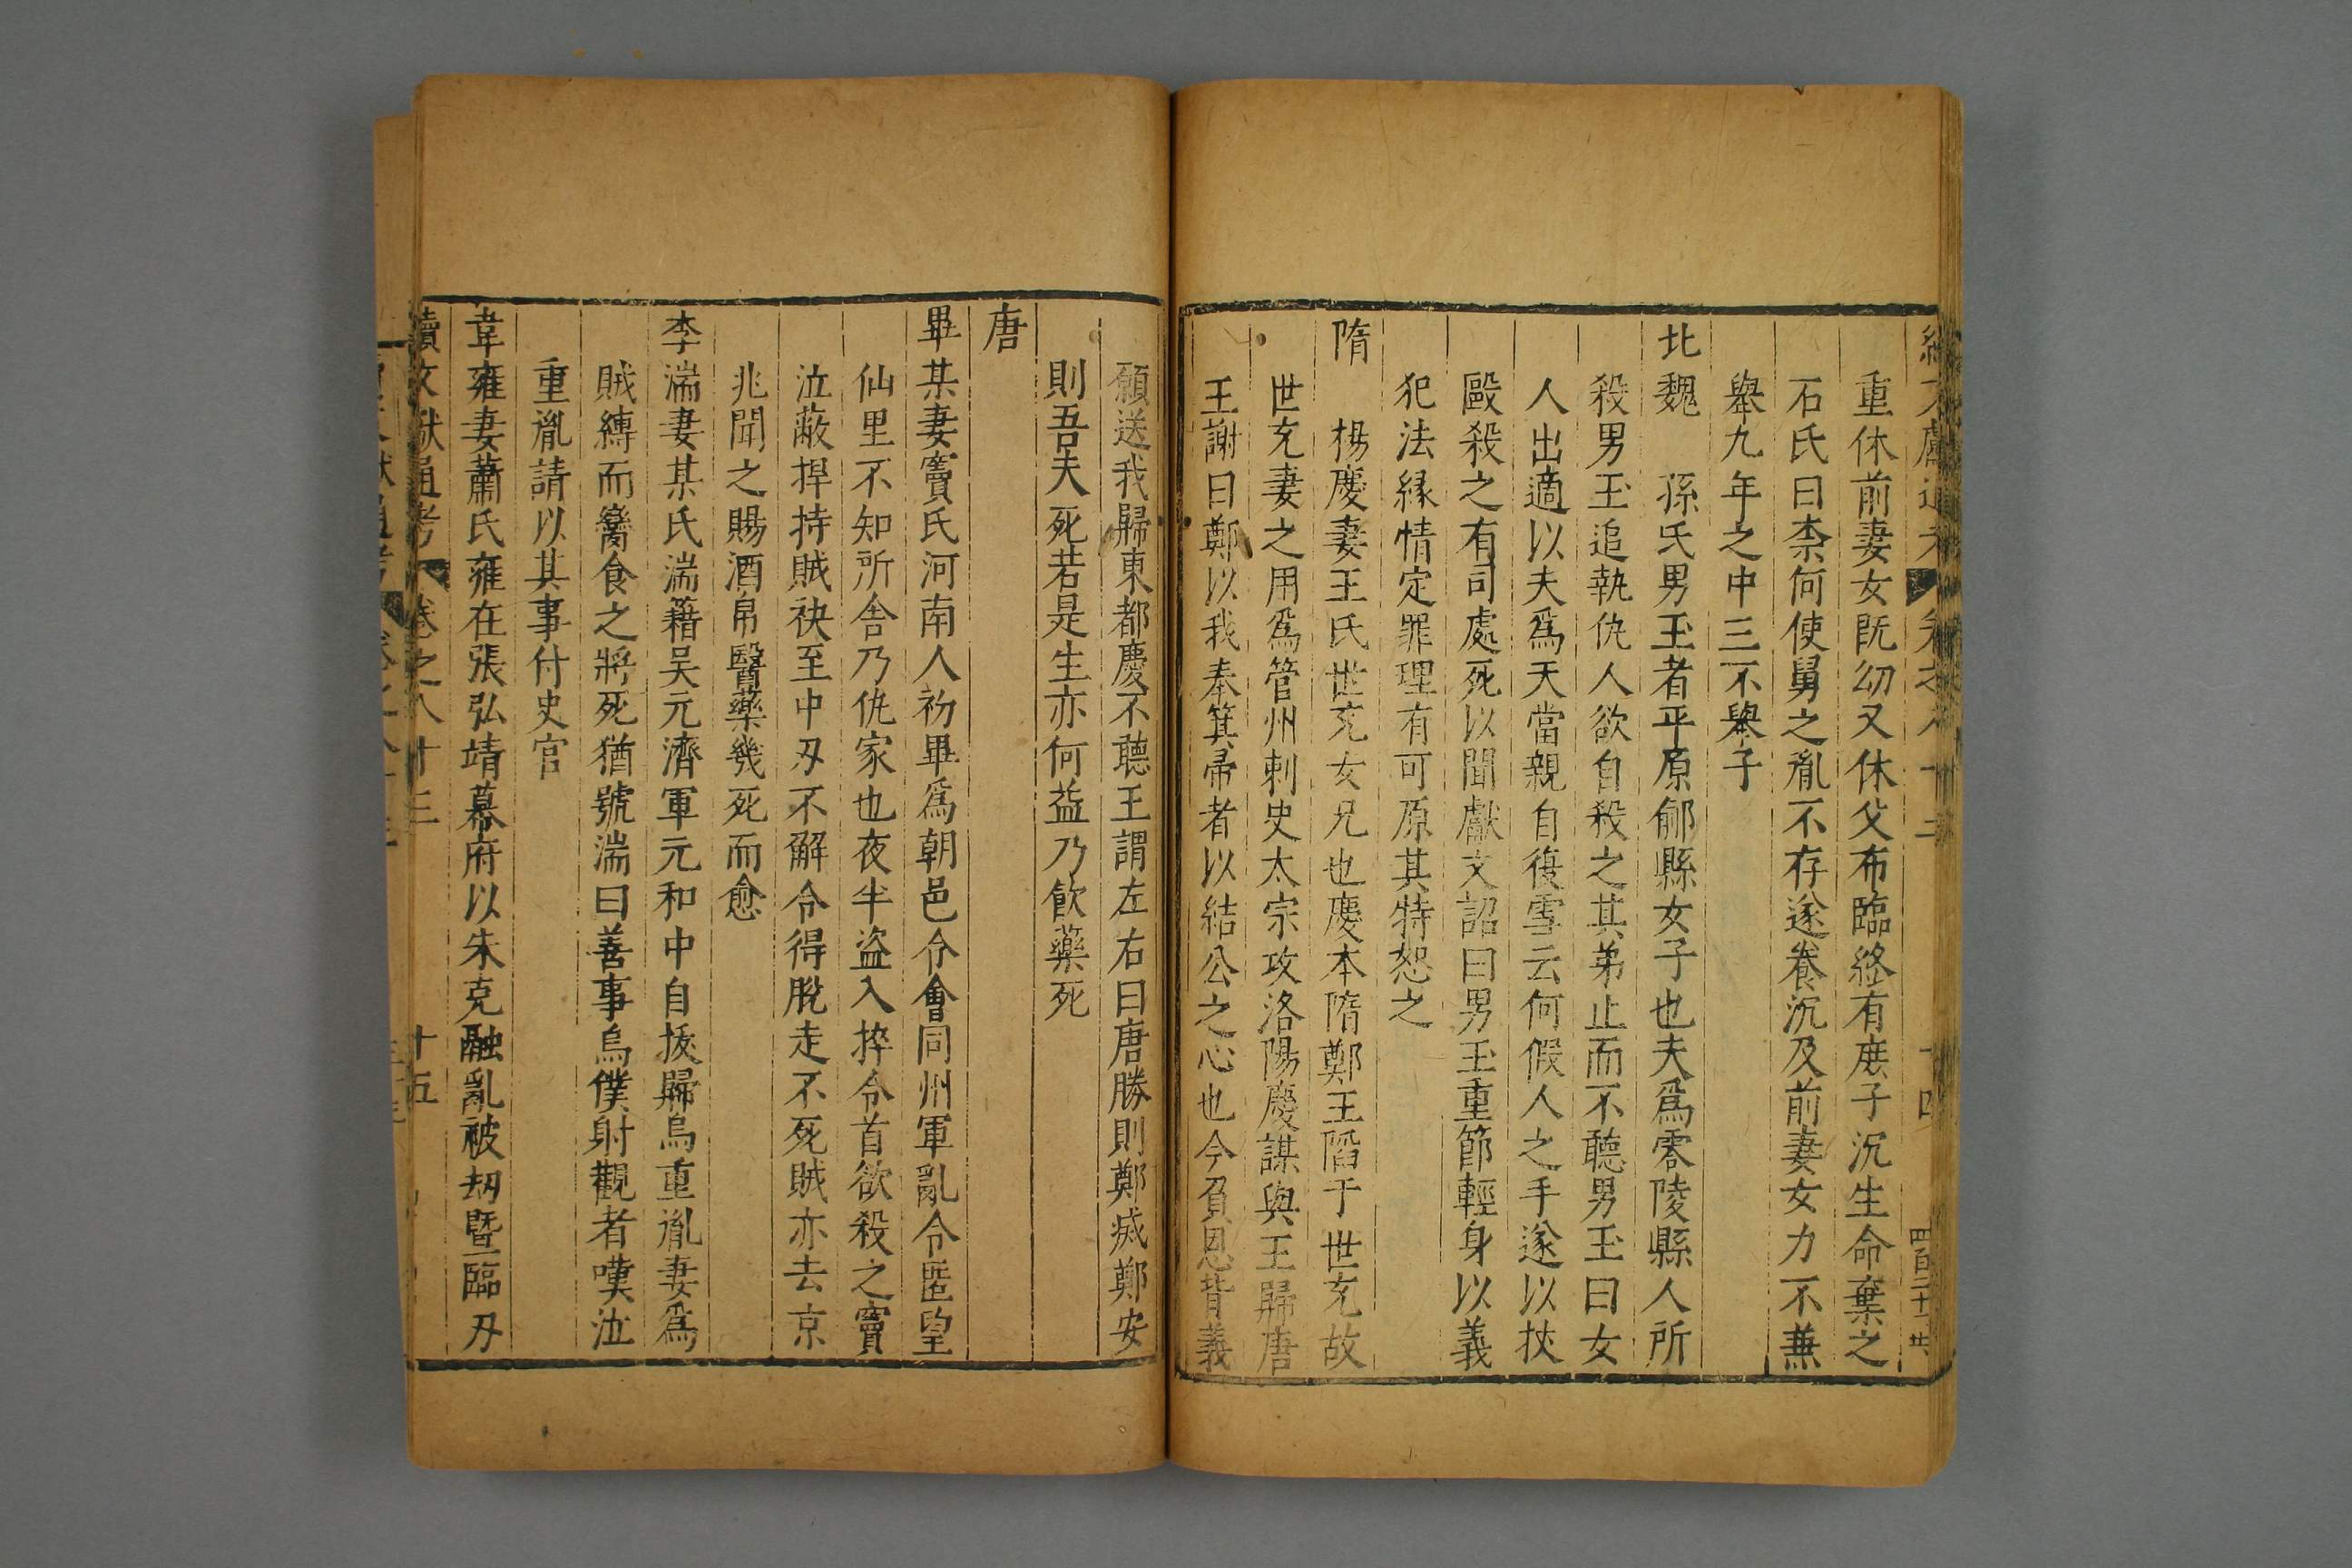 重休前妻女旣幼又休父布臨終有庶子沉生命棄之
石氏曰柰何使舅之胤不存遂養沉及前妻女力不兼
舉九年之中三不舉子
北魏 孫氏男玉者平原鄃縣女子也夫爲零陵縣人所
殺男玉追執仇人欲自殺之其弟止而不聽男玉曰女
人出適以夫爲天當親自復雪云何假人之手遂以扙
毆殺之有司處死以聞獻文詔曰男玉重節輕身以義
犯法緣情定罪理有可原其特恕之
隋 楊慶妻王氏世充女兄也慶本隋鄭王䧟于世充故
世充妻之用爲管州刺史太宗攻洛陽慶謀與王歸唐
王謝曰鄭以我奉箕帚者以結公之心也今負恩背義
願送我歸東都慶不聽王謂左右曰唐勝則鄭㓕鄭安
則吾夫死若是生亦何益乃飲藥死
唐
畢某妻竇氏河南人初畢爲朝邑令會同州軍亂令匿望
仙里不知所舍乃仇家也夜半盜入捽令首欲殺之竇
泣蔽捍持賊袂至中刃不解令得脫走不死賊亦去京
兆聞之賜酒帛醫藥幾死而愈
李湍妻某氏湍籍吴元濟軍元和中自拔歸烏重胤妻爲
賊縛而臠食之將死猶號湍曰善事烏僕射觀者嘆泣
重胤請以其事付史官
韋雍妻蕭氏雍在張弘靖幕府以朱克融亂被刼曁臨刃
續文獻通考 卷之八十三 十五